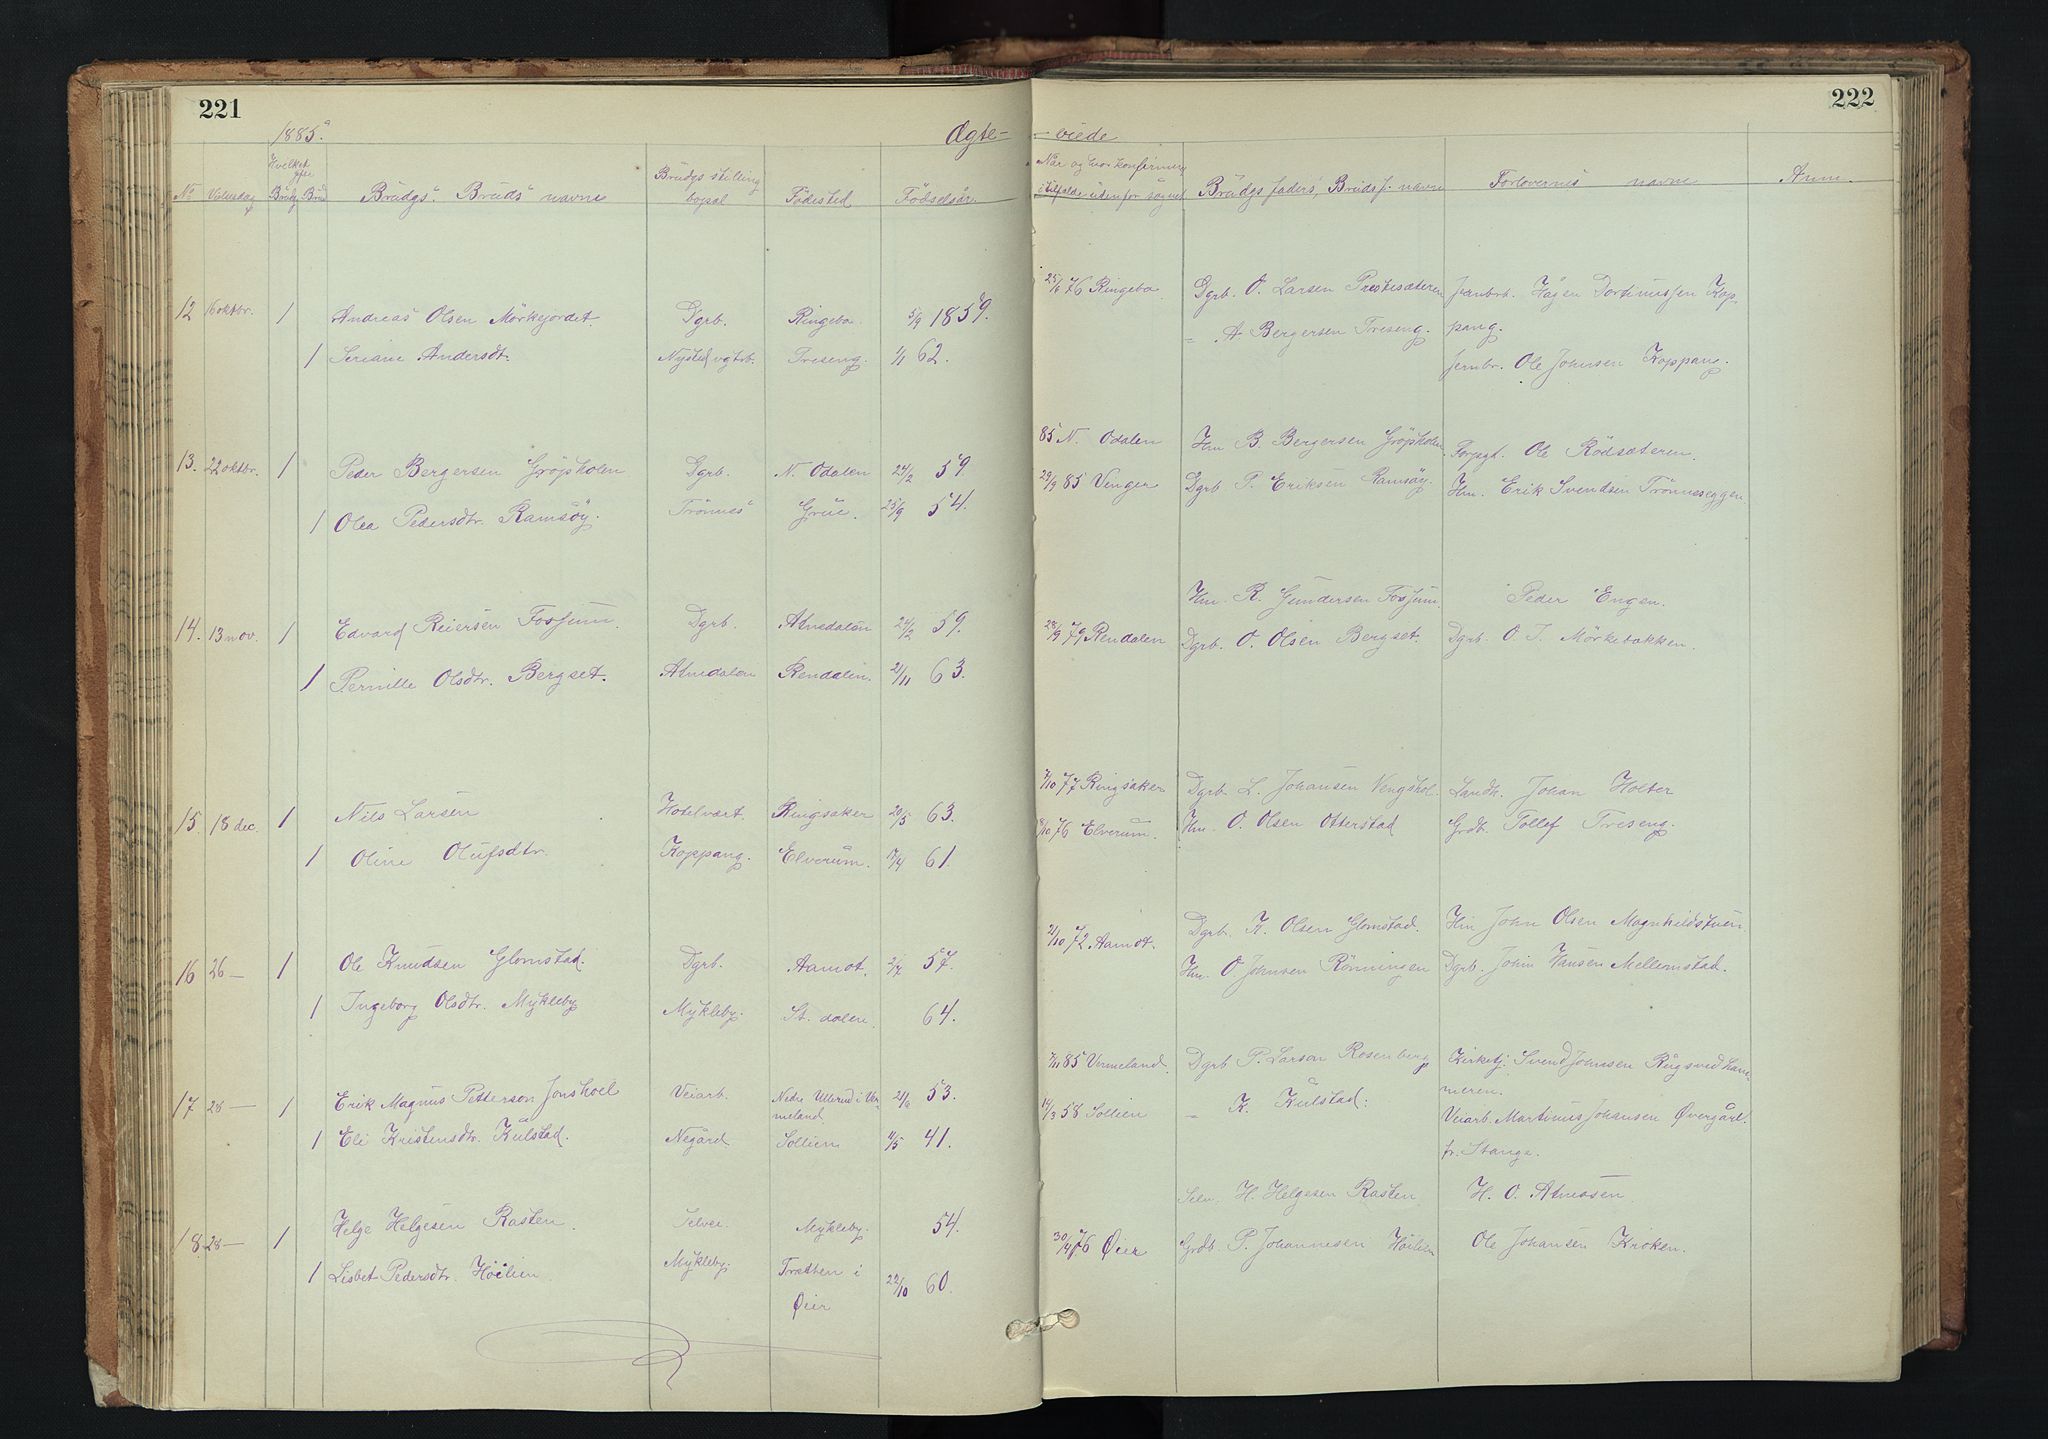 221
1885.
Ægte-
No Vielsesdag Hvilket gte Brudg Brud Brudgs. Bruds navne Brudgs stilling bopæl Födested Födselsår
12 16 oktbr. 1 Andreas Olsen Mörkejordet. Dgrb. Ringebo. 5/9 1859.
1 Seriane Andersdt. Nysted vgtrb. Treseng. 1/1 62.
13. 22 oktbr. 1 Peder Bergersen Gröjsholen Dgrb. N. Odalen 24/2 59.
1 Olea Pedersdtr. Ramsöy. Trönnes Grue. 25/9 54.
14. 13 nov. 1 Edvard Reiersen Fossum. Dgrb. Atnedalen 24/2 59.
1 Pernille Olsdtr. Bergset. Atnedalen Rendalen. 21/11 63.
15. 18 dec. 1 Nils Larsen Hotelvært. Ringsaker 20/5 63.
1 Oline Olufsdtr. Koppang. Elverum. 17/4 61.
16 26 — 1 Ole Knudsen Glomstad. Dgrb. Aamot. 57.
1 Ingeborg Olsdtr. Mykleby Mykleby. St. dalen. 64.
17 28 — 1 Erik Magnus Petterson Jonshoel Veiarb. Nedre Ullerud i Vermeland 21/6 53.
1 Eli Kristensdtr. Kulstad. Negård Sollien 11/5 41.
18. 28 — 1 Helge Helgesen Rasten. Selvei. Mykleby. 54.
1 Lisbet Pedersdtr. Höilien Mykleby. Tretten i 22/10 60.
Øier
222
viede
Når og hvor konfirmeret i tilfælde udenfor sognet Brudgs faders, Bruds f. navne Forlovernes navne Anm.
25/6 76 Ringebo Dgrb. O. Larsen Prestesæteren Jernbrb. Hågen Dortinussen Kop-
" A Bergersen Treseng. pang.
Jernbr. Ole Johnsen Koppang.
85 N. Odalen Hm B. Bergersen Gröjsholen Forpgt. Ole Rödsæteren.
29/9 85 Vinger Dgrb P. Eriksen Ramsöy. Hm. Erik Svendsen Trönneseggen
Hm. R. Gundersen Fossum. Peder Engen.
28/9 79 Rendalen Dgrb. O. Olsen Bergset. Dgrb. O. J. Mörkebakken.
7/10 77 Ringsaker Dgrb. L. Johansen Vengshol. Landh. Johan Holter
8/10 76 Elverum. Hm. O. Olsen Otterstad Grdb. Tollef Treseng.
Dgrb. K. Olsen Glomstad. Hm John Olsen Magnhildstuen
21/10 72 Aamot. Hm. O. Johnsen Rönningen Dgrb. John Hansen Mellemstad.
7/11 85 Vermeland. Dgrb P. Larson Rosenberg Kirketj. Svend Johnsen Rugsvedham-
meren.
14/3 58 Sollien " K. Kulstad. Veiarb. Martinus Johansen Øvergårl.
fr. Stange.
Selv. H. Helgesen Rasten H. O. Atneosen
30/4 76 Øier Grdb. P. Johannesen Höilien Ole Johansen Kroken.